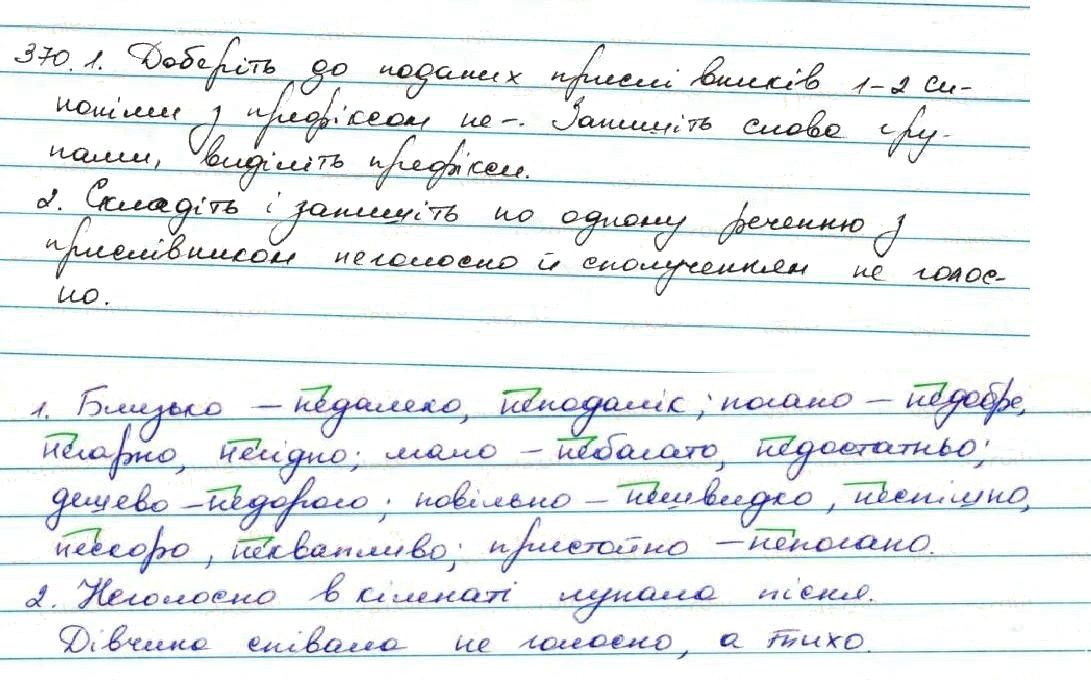 370. 1. Доберіть до поданих прислівників 1-2 си-
ноніми з префіксом не-. Запишіть слова гру-
пами, виділіть префікси.
2. Складіть і запишіть по одному реченню з
прислівником неголосно й сполученням не голос-
но.
1. Близько – недалеко, неподалік; погано – недобре,
негарно, негідно; мало – небагато, недостатньо;
дешево – недорого; повільно – нешвидко, неспішно,
нескоро, неквапливо; пристойно – непогано.
2. Неголосно в кімнаті лунала пісня.
Дівчина співала не голосно, а тихо.